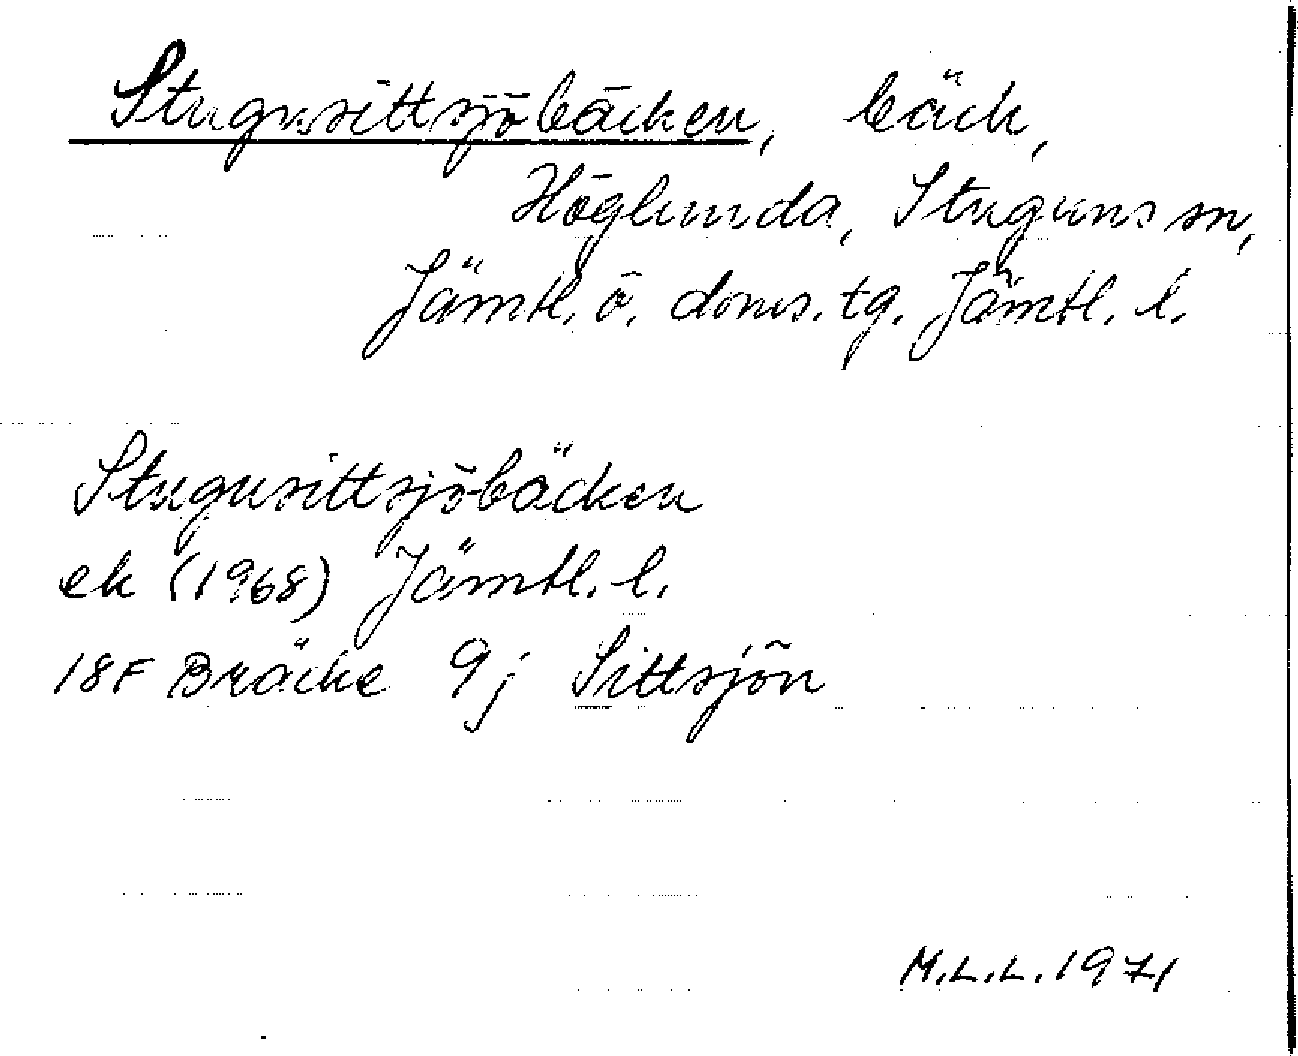 Stugusittsjöbäcken, bäck,
Höglunda, Stuguns sn,
Jämtl. ö. doms. tg. Jämtl. l.
Stugusittsjöbäcken
ek (1968) Jämtl. l.
18F Bräcke 9j Sittsjön
M.L.L. 1971